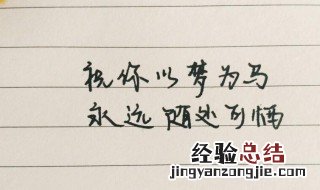 祝你以梦为马
永远随处可栖
经验总结
jingyanzongjie.com